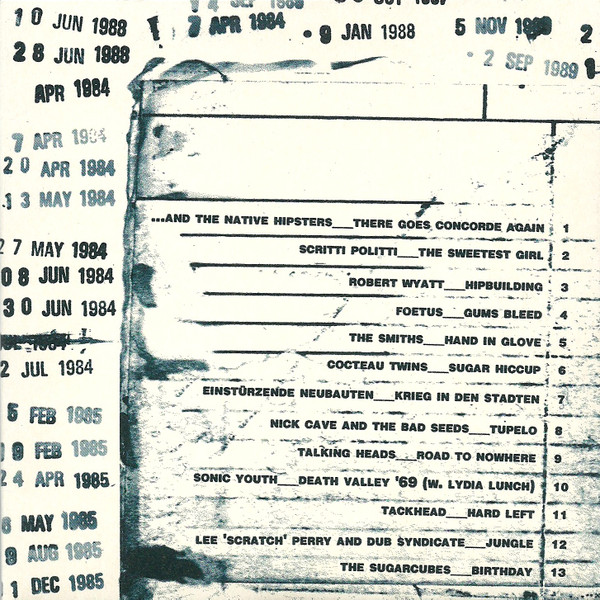 10 JUN 1988
28 JUN 1988
7 APR 1984
9 JAN 1988
5 NOV
2 SEP 1989
APR 1984
7 APR 1984
20 APR 1984
13 MAY 1984
27 MAY 1984
08 JUN 1984
30 JUN 1984
2 JUL 1984
5 FEB 1985
9 FEB 1985
24 APR 1985
6 MAY 1985
9 AUG 1985
1 DEC 1985
...AND THE NATIVE HIPSTERS___THERE GOES CONCORDE AGAIN 1
SCRITTI POLITTI___THE SWEETEST GIRL 2
ROBERT WYATT___HIPBUILDING 3
FOETUS___GUMS BLEED 4
THE SMITHS___HAND IN GLOVE 5
COCTEAU TWINS___SUGAR HICCUP 6
EINSTÜRZENDE NEUBAUTEN___KRIEG IN DEN STADTEN 7
NICK CAVE AND THE BAD SEEDS___TUPELO 8
TALKING HEADS___ROAD TO NOWHERE 9
SONIC YOUTH___DEATH VALLEY '69 (W. LYDIA LUNCH) 10
TACKHEAD___HARD LEFT 11
LEE 'SCRATCH' PERRY AND DUB SYNDICATE___JUNGLE 12
THE SUGARCUBES___BIRTHDAY 13